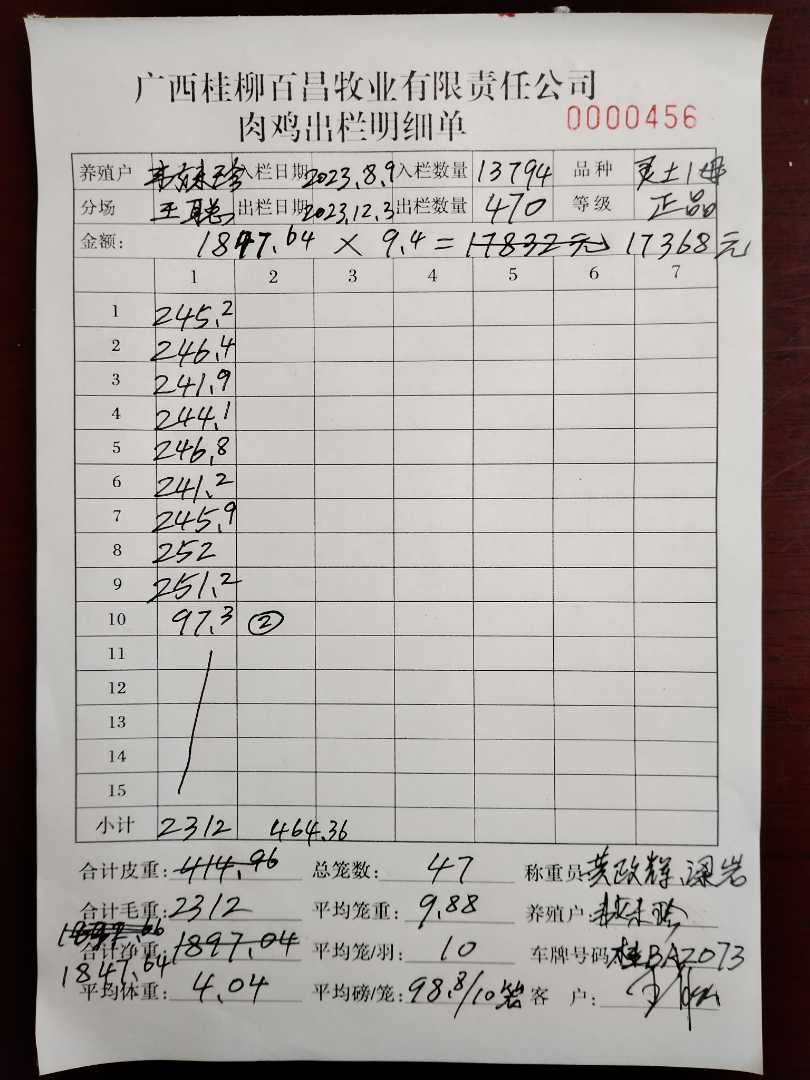 广西桂柳百昌牧业有限责任公司
肉鸡出栏明细单 0000456
养殖户 入栏日期 2023.8.9 入栏数量 13794 品种 灵土1母
分场 王聪 出栏日期 2023.12.3 出栏数量 470 等级 正品
金额: 1847.64 × 9.4 = 17832元 17368元
1 2 3 4 5 6 7
1 245.2
2 246.4
3 241.9
4 244.1
5 246.8
6 241.2
7 245.9
8 252
9 251.2
10 97.3 ②
11
12
13
14
15
小计 2312 464.36
合计皮重: 414.96 总笼数: 47 称重员 黄政辉
合计毛重: 2312 平均笼重: 9.88 养殖户
合计净重: 1897.04 平均笼/羽: 10 车牌号码 桂BAZ073
1847.64
平均体重: 4.04 平均磅/笼: 98.8/10笼 客 户: